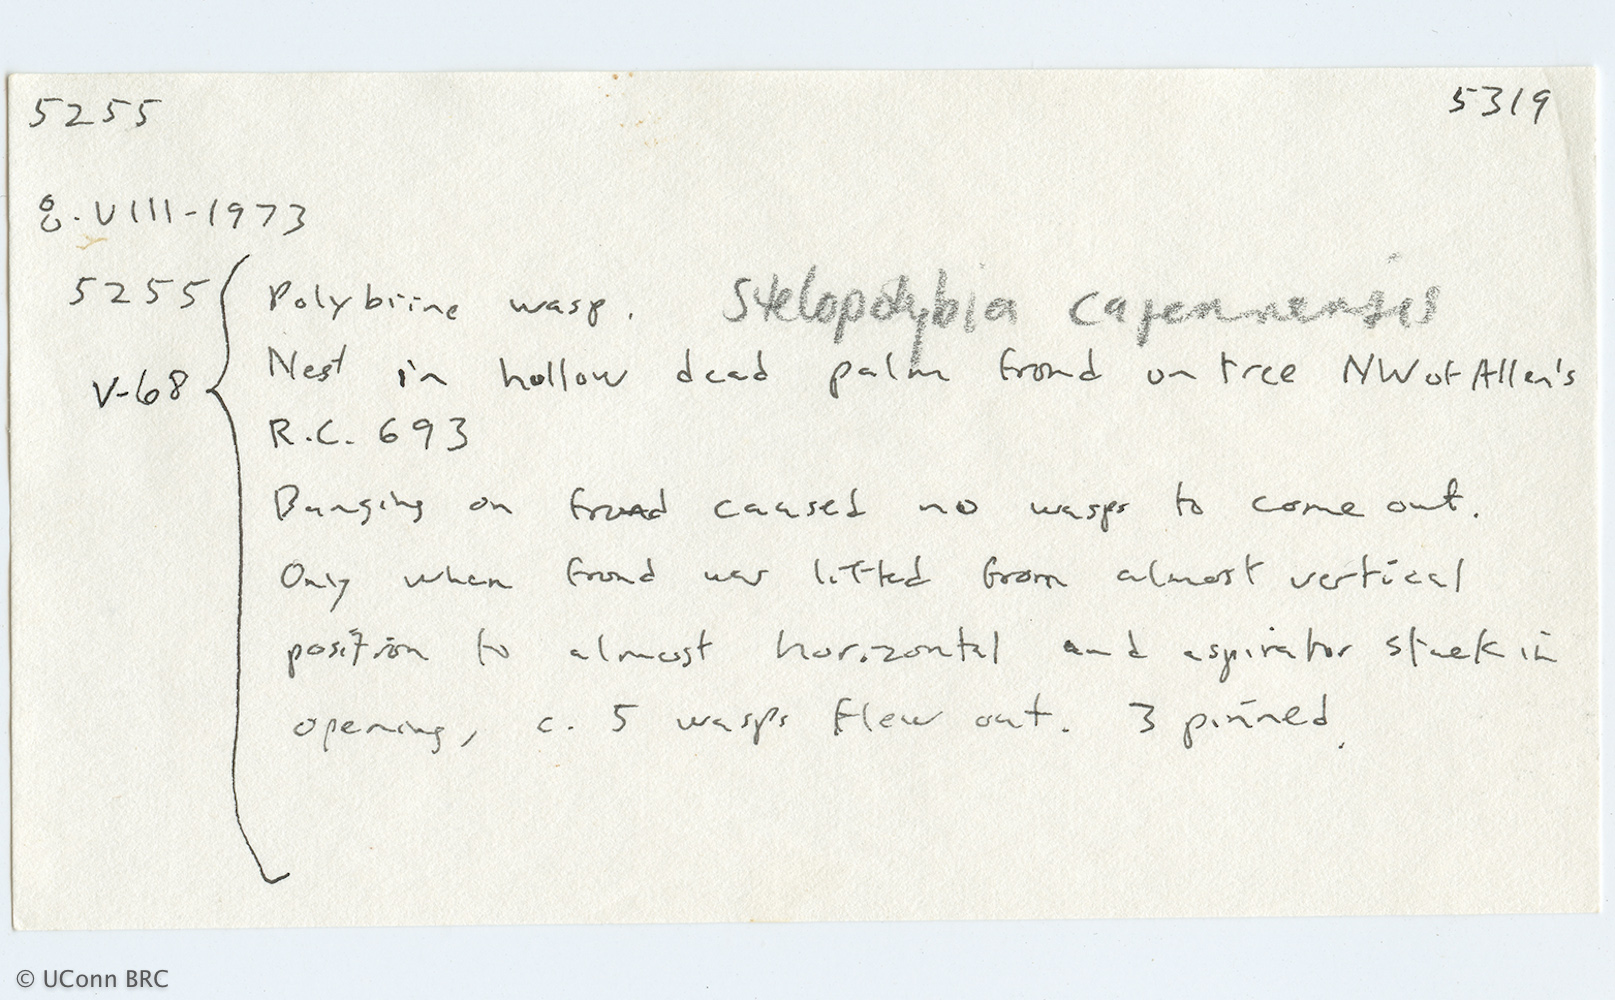 5255 5319
8.VIII-1973
5255 Polybiine wasp. Stelopolybia cajennensis
V-68 Nest in hollow dead palm frond on tree NW of Allen's
R.C. 693
Banging on frond caused no wasps to come out.
Only when frond was lifted from almost vertical
position to almost horizontal and aspirator stuck in
opening, c. 5 wasps flew out. 3 pinned.
© UConn BRC